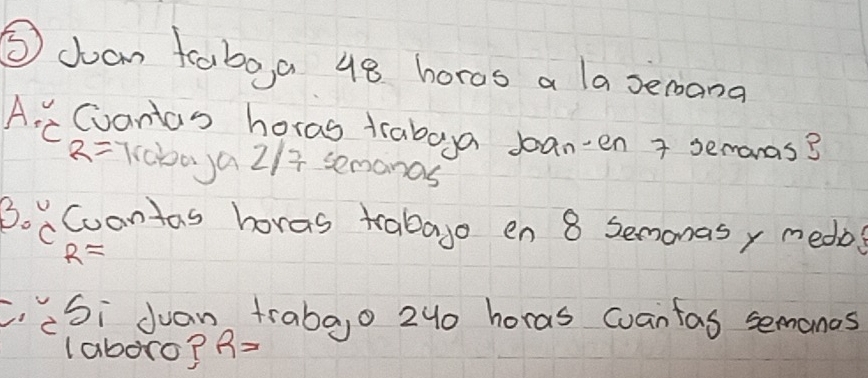 ⑤ Juan trabaja 48 horas a la semana
A. ¿Cuantas horas trabaja Joan en 7 semanas?
R= Trabaja 217 semanas
B. ¿Cuantas horas trabajo en 8 semanas y medo?
R=
C. ¿Si Juan trabajo 240 horas cuantas semanas
laboro? R=